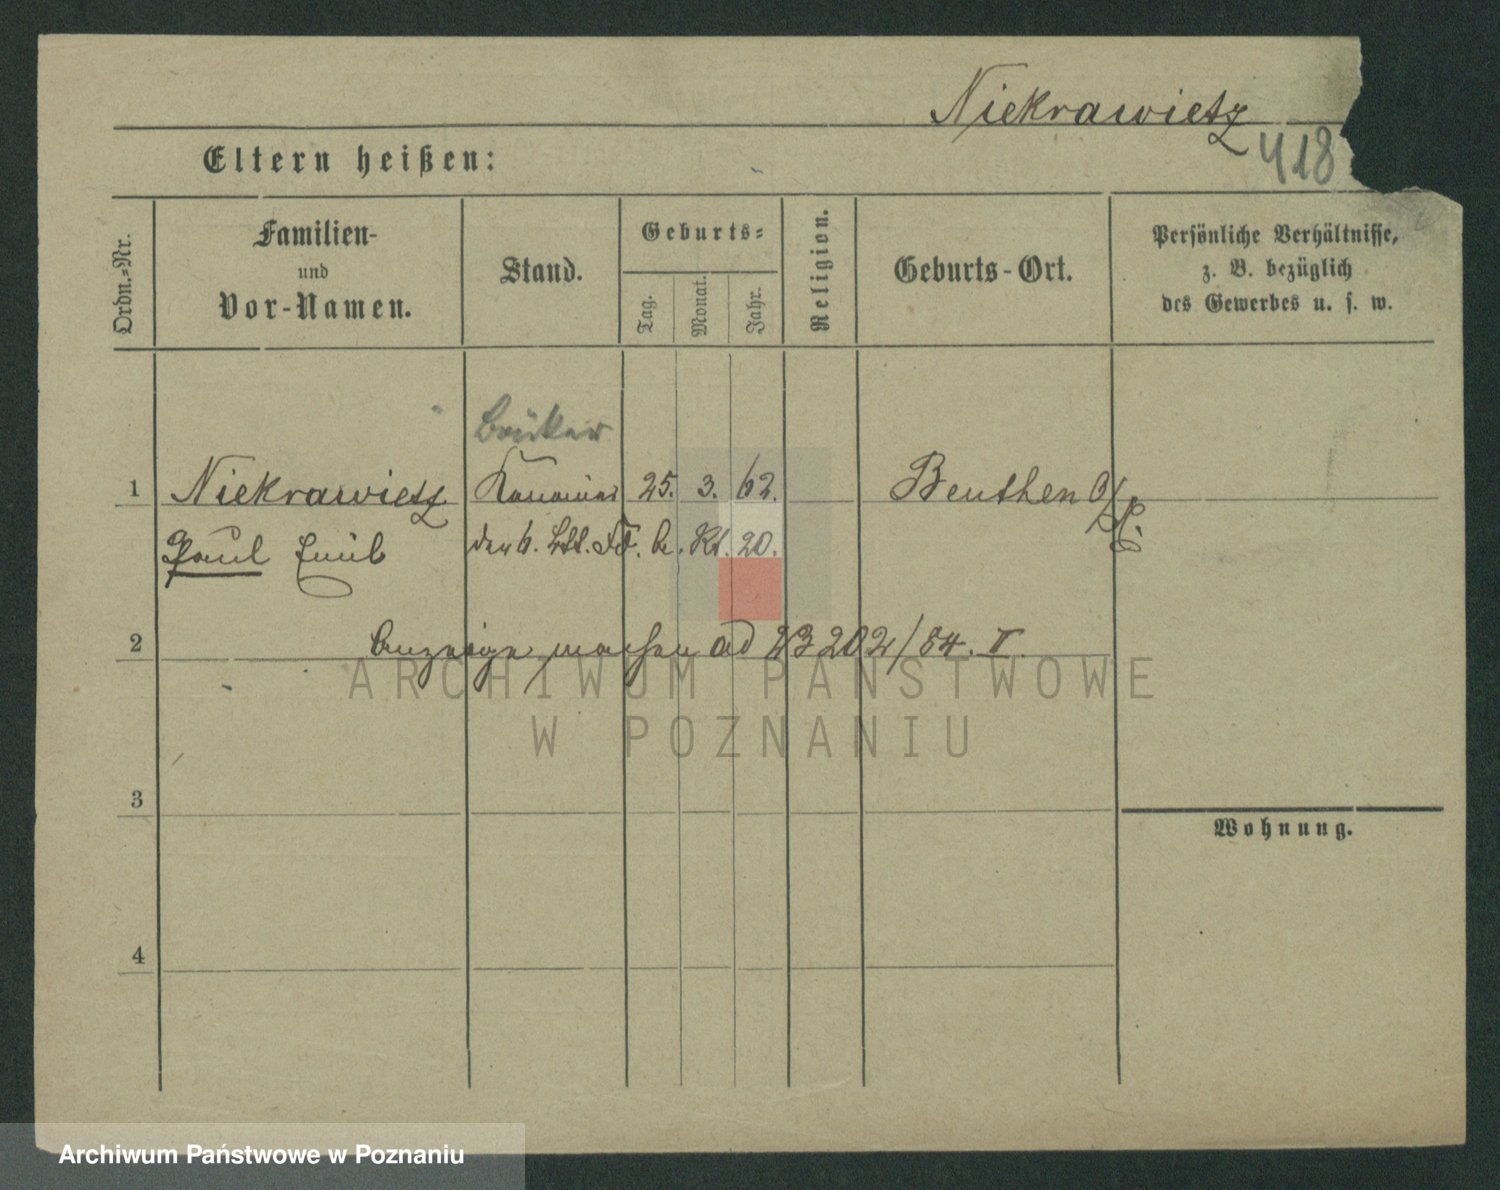 Niekrawietz
418
Eltern heißen:
Ordn.=Nr.
Familien-
und
Vor-Namen.
Stand.
Geburts=
Tag.
Monat.
Jahr.
Religion.
Geburts-Ort.
Persönliche Verhältnisse,
z. B. bezüglich
des Gewerbes u. s. w.
1 Niekrawietz 25. 3. 62. Beuthen O/S.
Paul Emil der 6. 20.
2 Anzeige machen ad 23202/84. II.
3
Wohnung.
4
ARCHIWUM PAŃSTWOWE
W POZNANIU
Archiwum Państwowe w Poznaniu